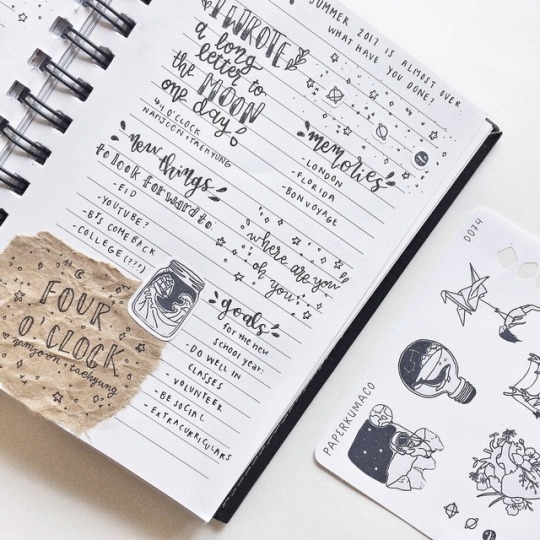 SUMMER 2017 IS ALMOST OVER
WHAT HAVE YOU DONE?
I WROTE
a long
letter to
the MOON
one day
4, O'CLOCK
NAMJOON + TAEHYUNG
memories
-LONDON
-FLORIDA
-BON VOYAGE
new things
to look forward to:
-EID
-YOUTUBE?
-BTS COMEBACK
-COLLEGE (???)
where are you
oh you
goals
for the new
school year:
-DO WELL IN
CLASSES
-VOLUNTEER
-BE SOCIAL
-EXTRACURRICULARS
FOUR
O'CLOCK
namjoon + taehyung
D074
PAPERKUMACO